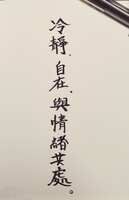 冷靜.自在.與情緒共處。